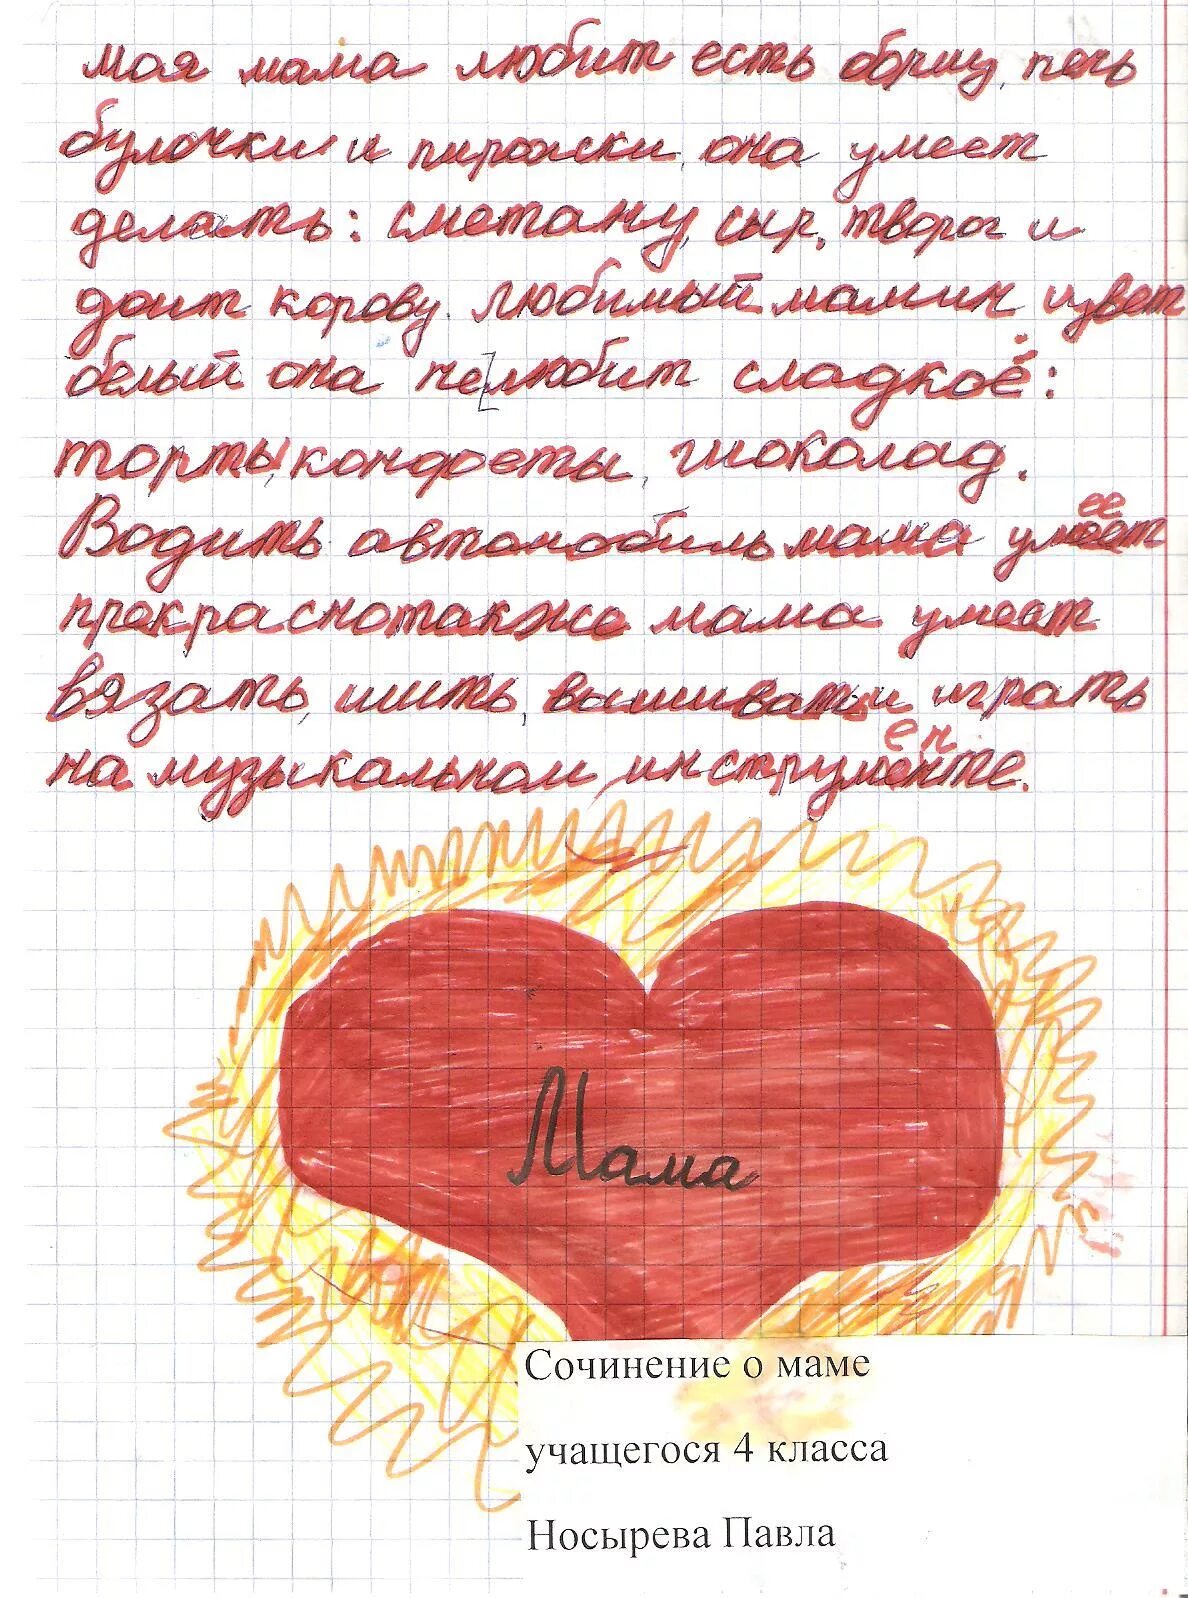 моя мама любит есть борщ, печь
булочки и пирожки, она умеет
делать: сметану, сыр, творог и
доит корову. любимый мамин цвет
белый она нелюбит сладкоё:
торты, конфеты, шоколад.
Водить автомобиль мама умеет
прекраснотакже мама умеет
вязать, шить, вышивать и играть
на музыкальном инструменте.
Мама
Сочинение о маме
учащегося 4 класса
Носырева Павла